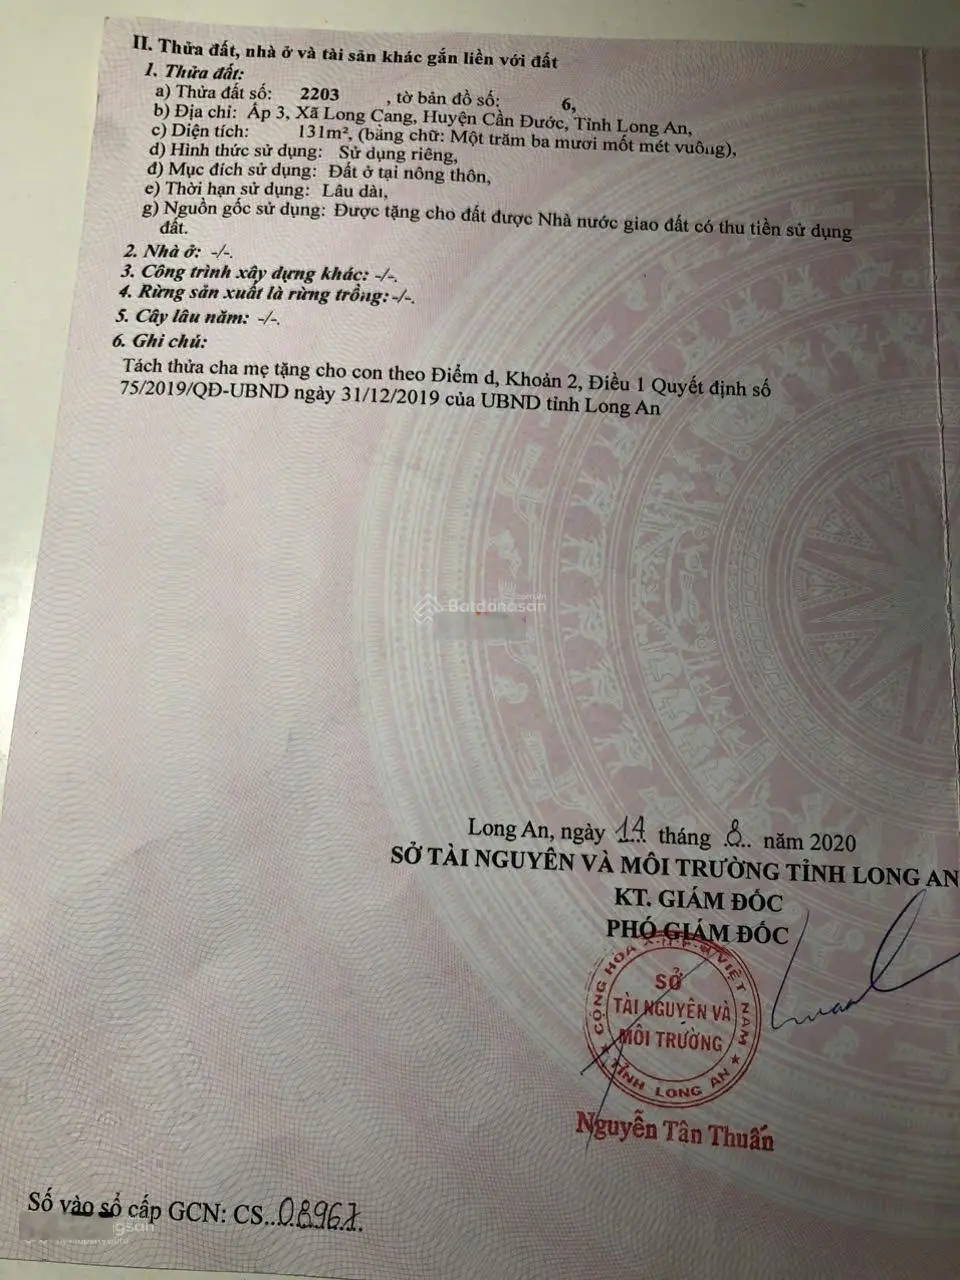 II. Thửa đất, nhà ở và tài sản khác gắn liền với đất
1. Thửa đất:
a) Thửa đất số: 2203 , tờ bản đồ số: 6,
b) Địa chỉ: Ấp 3, Xã Long Cang, Huyện Cần Đước, Tỉnh Long An,
c) Diện tích: 131m², (bằng chữ: Một trăm ba mươi mốt mét vuông),
d) Hình thức sử dụng: Sử dụng riêng,
đ) Mục đích sử dụng: Đất ở tại nông thôn,
e) Thời hạn sử dụng: Lâu dài,
g) Nguồn gốc sử dụng: Được tặng cho đất được Nhà nước giao đất có thu tiền sử dụng
đất.
2. Nhà ở: -/-.
3. Công trình xây dựng khác: -/-.
4. Rừng sản xuất là rừng trồng: -/-.
5. Cây lâu năm: -/-.
6. Ghi chú:
Tách thửa cha mẹ tặng cho con theo Điểm d, Khoản 2, Điều 1 Quyết định số
75/2019/QĐ-UBND ngày 31/12/2019 của UBND tỉnh Long An
Batdongsan
.com.vn
Long An, ngày 14 tháng 8 năm 2020
SỞ TÀI NGUYÊN VÀ MÔI TRƯỜNG TỈNH LONG AN
KT. GIÁM ĐỐC
PHÓ GIÁM ĐỐC
CỘNG HÒA X.H.C.N VIỆT NAM
SỞ
TÀI NGUYÊN VÀ
MÔI TRƯỜNG
TỈNH LONG AN
Nguyễn Tân Thuấn
Số vào sổ cấp GCN: CS..08967.